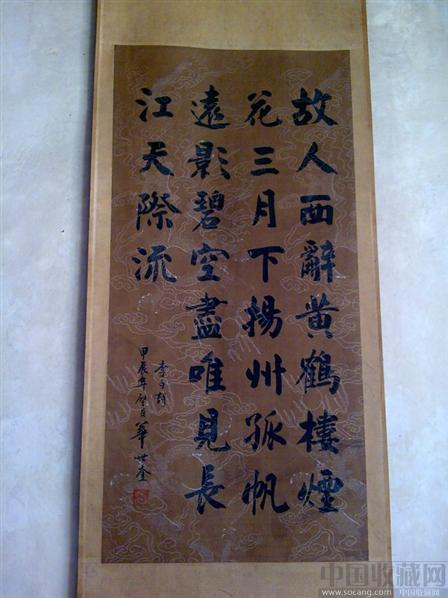 故人西辭黃鶴樓煙
花三月下揚州孤帆
遠影碧空盡唯見長
江天際流
李白詩
甲辰年
華世奎
中国收藏网
www.socang.com 中国收藏网